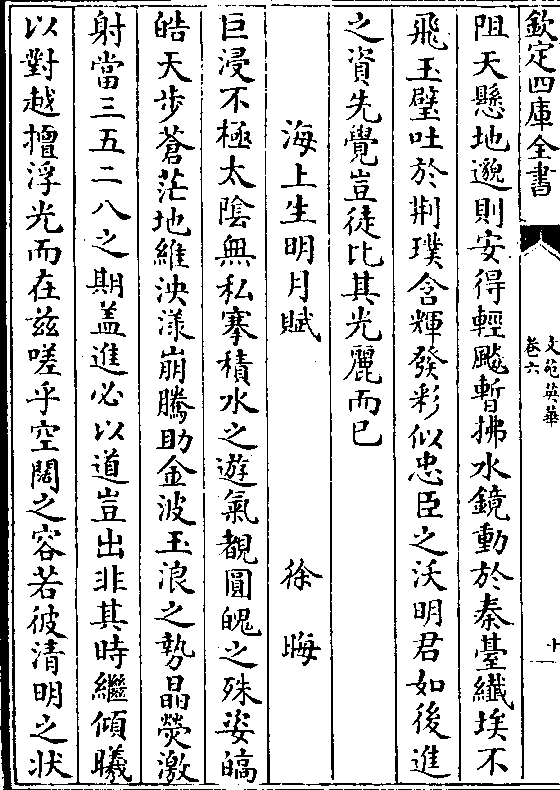 欽定四庫全書
文苑英華
卷六
十
阻天懸地邈則安得輕飈暫拂水鏡動於秦臺纖埃不
飛玉璧吐於荆璞含輝發彩似忠臣之沃明君如後進
之資先覺豈徒比其光麗而已
海上生明月賦 徐晦
巨浸不極太陰無私搴積水之遊氣覩圓魄之殊姿皜
皓天步蒼茫地維泱漾崩騰助金波玉浪之勢晶熒激
射當三五二八之期盖進必以道豈出非其時繼傾曦
以對越擅浮光而在兹嗟乎空闊之容若彼清明之狀